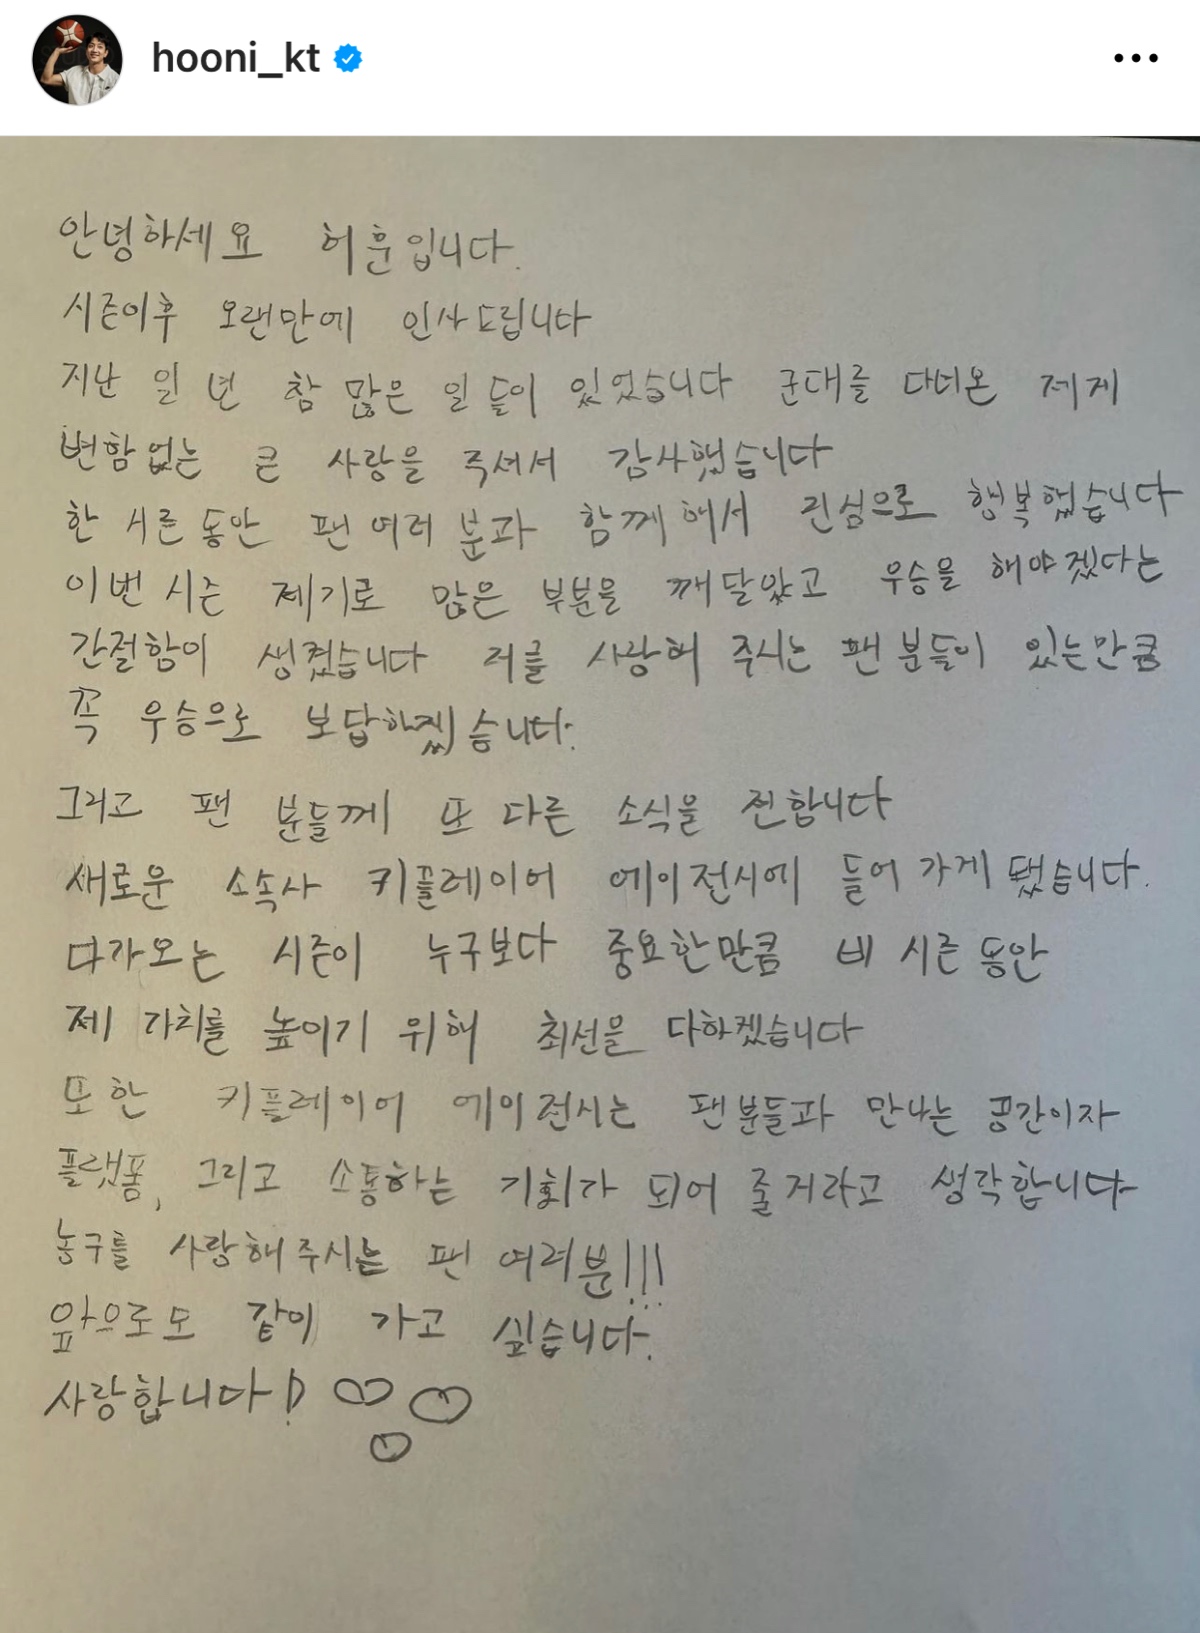 hooni_kt
안녕하세요 허훈입니다.
시즌이후 오랜만에 인사드립니다
지난 일 년 참 많은 일 들이 있었습니다 군대를 다녀온 제게
변함없는 큰 사랑을 주셔서 감사했습니다
한 시즌 동안 팬 여러 분과 함께 해서 진심으로 행복했습니다
이번 시즌 계기로 많은 부분을 깨달았고 우승을 해야겠다는
간절함이 생겼습니다 저를 사랑해 주시는 팬 분들이 있는만큼
꼭 우승으로 보답하겠습니다.
그리고 팬 분들께 또 다른 소식을 전합니다
새로운 소속사 키플레이어 에이전시에 들어 가게 됐습니다.
다가오는 시즌이 누구보다 중요한만큼 비 시즌 동안
제 가치를 높이기 위해 최선을 다하겠습니다
또한 키플레이어 에이전시는 팬분들과 만나는 공간이자
플랫폼, 그리고 소통하는 기회가 되어 줄거라고 생각합니다
농구를 사랑해주시는 팬 여러분!!!
앞으로도 같이 가고 싶습니다.
사랑합니다!